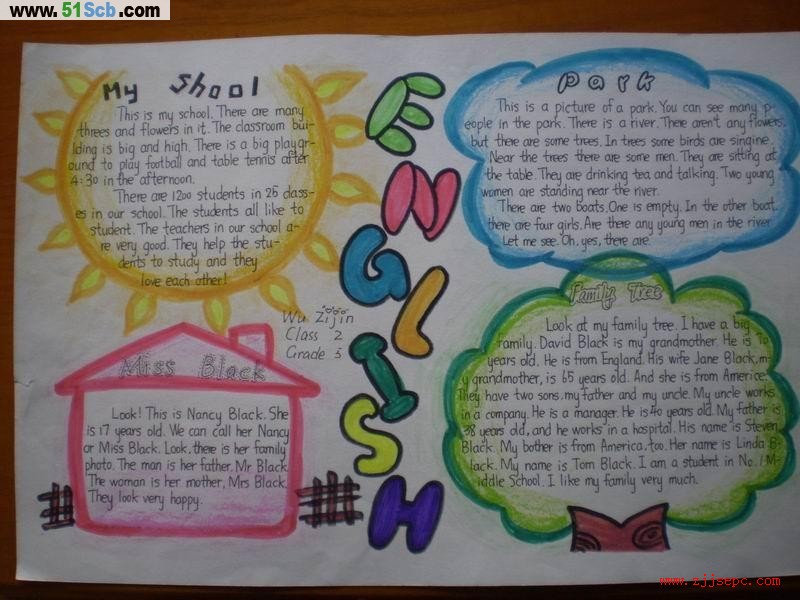 www.51Scb.com
My Shool
This is my school. There are many
threes and flowers in it. The classroom bui-
lding is big and high. There is a big playgr-
ound to play football and table tennis after
4:30 in the afternoon.
There are 1200 students in 26 class-
es in our school. The students all like to
student. The teachers in our school a-
re very good. They help the stu-
dents to study and they
love each other!
Wu Zijin
Class 2
Grade 5
Miss Black
Look! This is Nancy Black. She
is 17 years old. We can call her Nancy
or Miss Black. Look, there is her family
photo. The man is her father, Mr Black.
The woman is her mother, Mrs Black.
They look very happy.
ENGLISH
park
This is a picture of a park. You can see many p-
eople in the park. There is a river. There aren't any flowers,
but there are some trees. In trees some birds are singine.
Near the trees there are some men. They are sitting at
the table. They are drinking tea and talking. Two young
women are standing near the river.
There are two boats. One is empty. In the other boat
there are four girls. Are there any young men in the river
Let me see. Oh, yes, there are.
Family Tree
Look at my family tree. I have a big
family. David Black is my grandmother. He is 70
years old. He is from England. His wife Jane Black, m-
y grandmother, is 65 years old. And she is from Americe.
They have two sons, my father and my uncle. My uncle works
in a company. He is a manager. He is 40 years old. My father is
38 years old, and he works in a hospital. His name is Steven
Black. My bother is from America, too. Her name is Linda B-
lack. My name is Tom Black. I am a student in No.1 M-
iddle School. I like my family very much.
www.zjjsepc.com